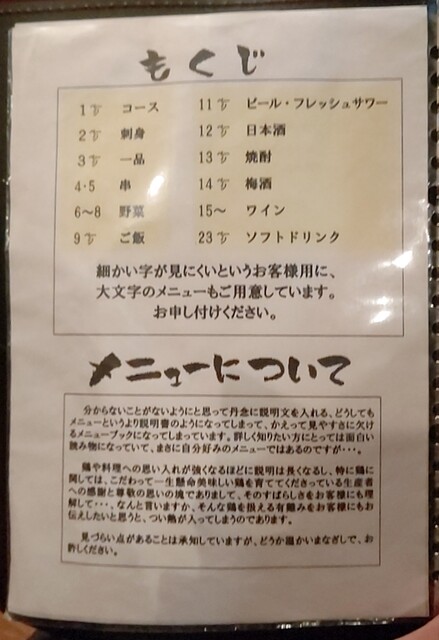 もくじ
1㌻ コース
2㌻ 刺身
3㌻ 一品
4・5 串
6～8 野菜
9㌻ ご飯
11㌻ ビール・フレッシュサワー
12㌻ 日本酒
13㌻ 焼酎
14㌻ 梅酒
15～ ワイン
23㌻ ソフトドリンク
細かい字が見にくいというお客様用に、
大文字のメニューもご用意しています。
お申し付けください。
メニューについて
分からないことがないようにと思って丹念に説明文を入れる、どうしても
メニューというより説明書のようになってしまって、かえって見やすさに欠け
るメニューブックになってしまっています。詳しく知りたい方にとっては面白い
読み物になっていて、まさに自分好みのメニューではあるのですが・・・。
鶏や料理への思い入れが強くなるほどに説明は長くなるし、特に鶏に
関しては、こだわって一生懸命美味しい鶏を育ててくださっている生産者
への感謝と尊敬の思いの塊でありまして、そのすばらしさをお客様にも理
解して・・・、なんと言いますか、そんな鶏を扱える有難みをお客様にもお
伝えしたいと思うと、つい熱が入ってしまうのであります。
見づらい点があることは承知していますが、どうか温かいまなざしで、お
許しください。